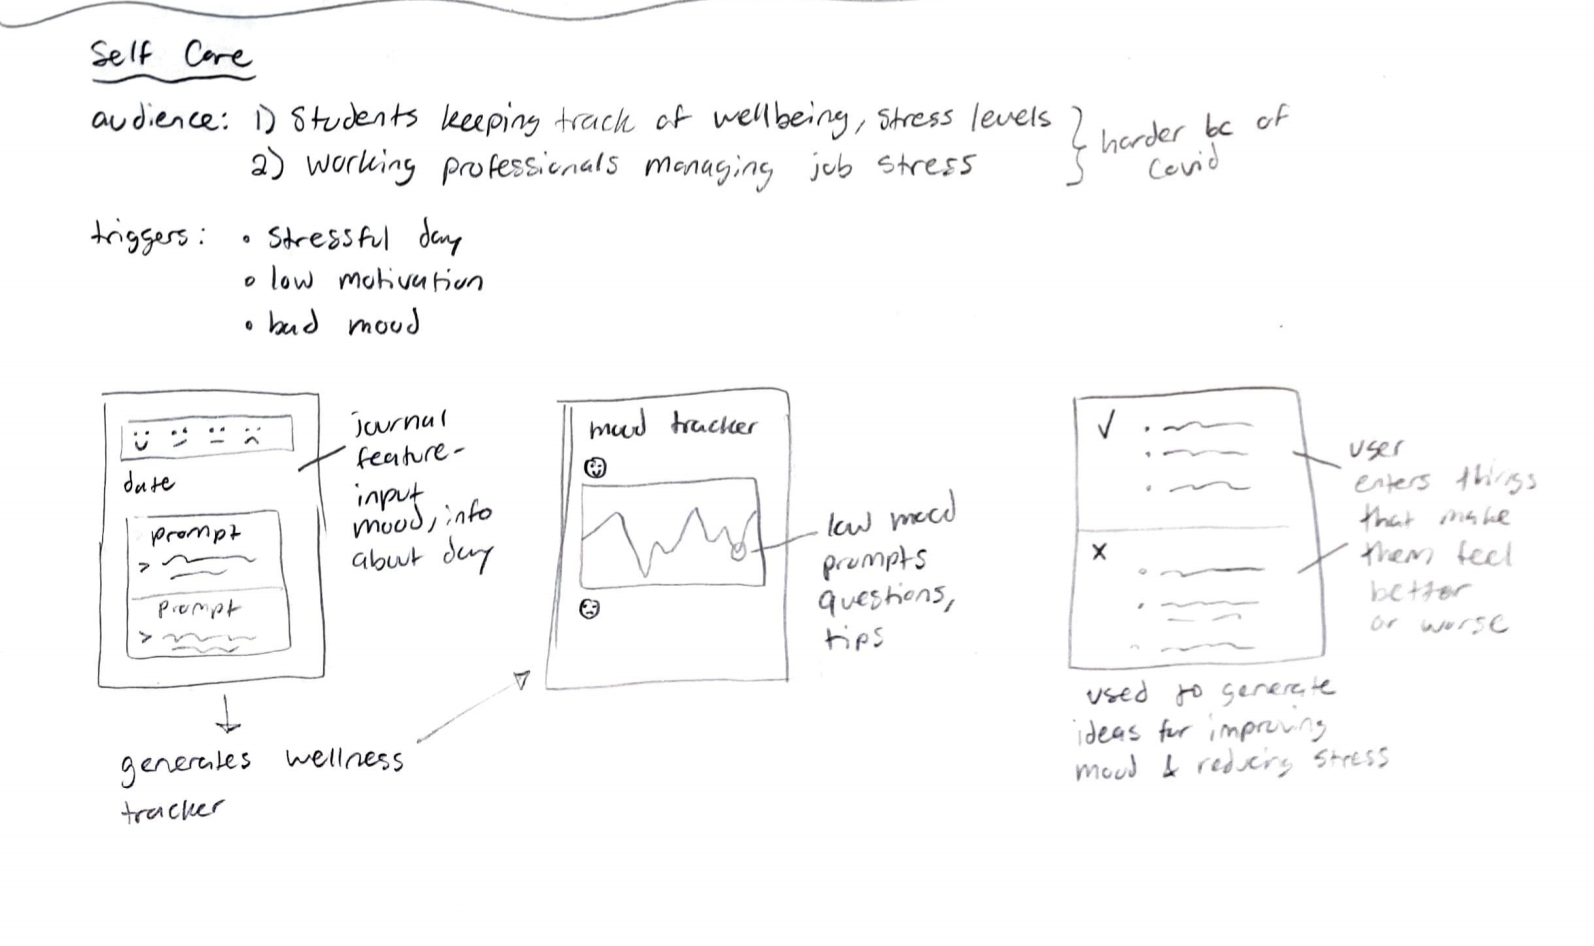 Self Care
audience: 1) Students keeping track of wellbeing, stress levels
2) working professionals managing job stress
harder bc of
Covid
triggers: • stressful day
• low motivation
• bad mood
date
prompt
>
prompt
>
journal
feature-
input
mood, info
about day
generates wellness
tracker
mood tracker
low mood
prompts
questions,
tips
✓
x
user
enters things
that make
them feel
better
or worse
used to generate
ideas for improving
mood & reducing stress